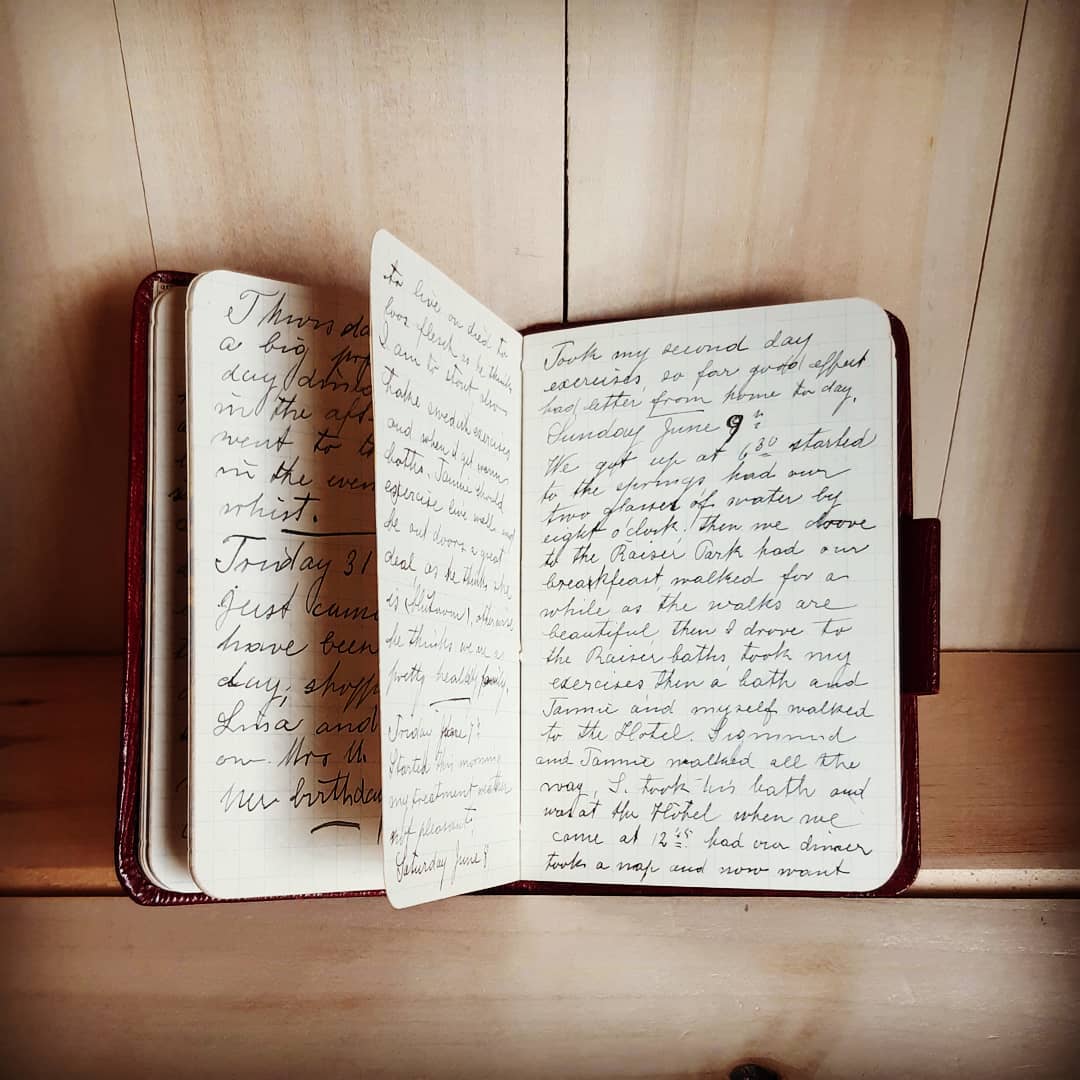 Thursda
a big
day
in the aft
went to t
in the even
whist.
Friday 31
just came
have been
day, shopp
and
on. Mrs
her birthday
to live on died to
loos flesh as he thinks
I am to stout also
thake swedish exercises
and when it get warm
baths, Jannie should
exercise live well and
be out doors a great
deal as he thinks she
is otherwise
he thinks we are a
pretty healthy family.
Friday June 7th
Started this morning
my treatment weather
not pleasant.
Saturday June 8
Took my second day
exercises, so far good effect
had letter from home to day.
Sunday June 9th
We got up at 6 30 started
to the springs had our
two glasses of water by
eight o'clock! then we drove
to the Raiser Park had our
breakfeast, walked for a
while as the walks are
beautiful, then I drove to
the Raiser baths, took my
exercises then a bath and
Jannie and myself walked
to the Hotel. Sigmund
and Jannie walked all the
way, S. took his bath and
was at the Hotel when we
came at 12 45 had our dinner
took a nap and now want